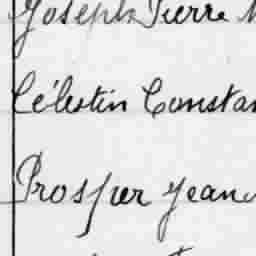 Joseph Pierre
Célestin Constan
Prosper Jean